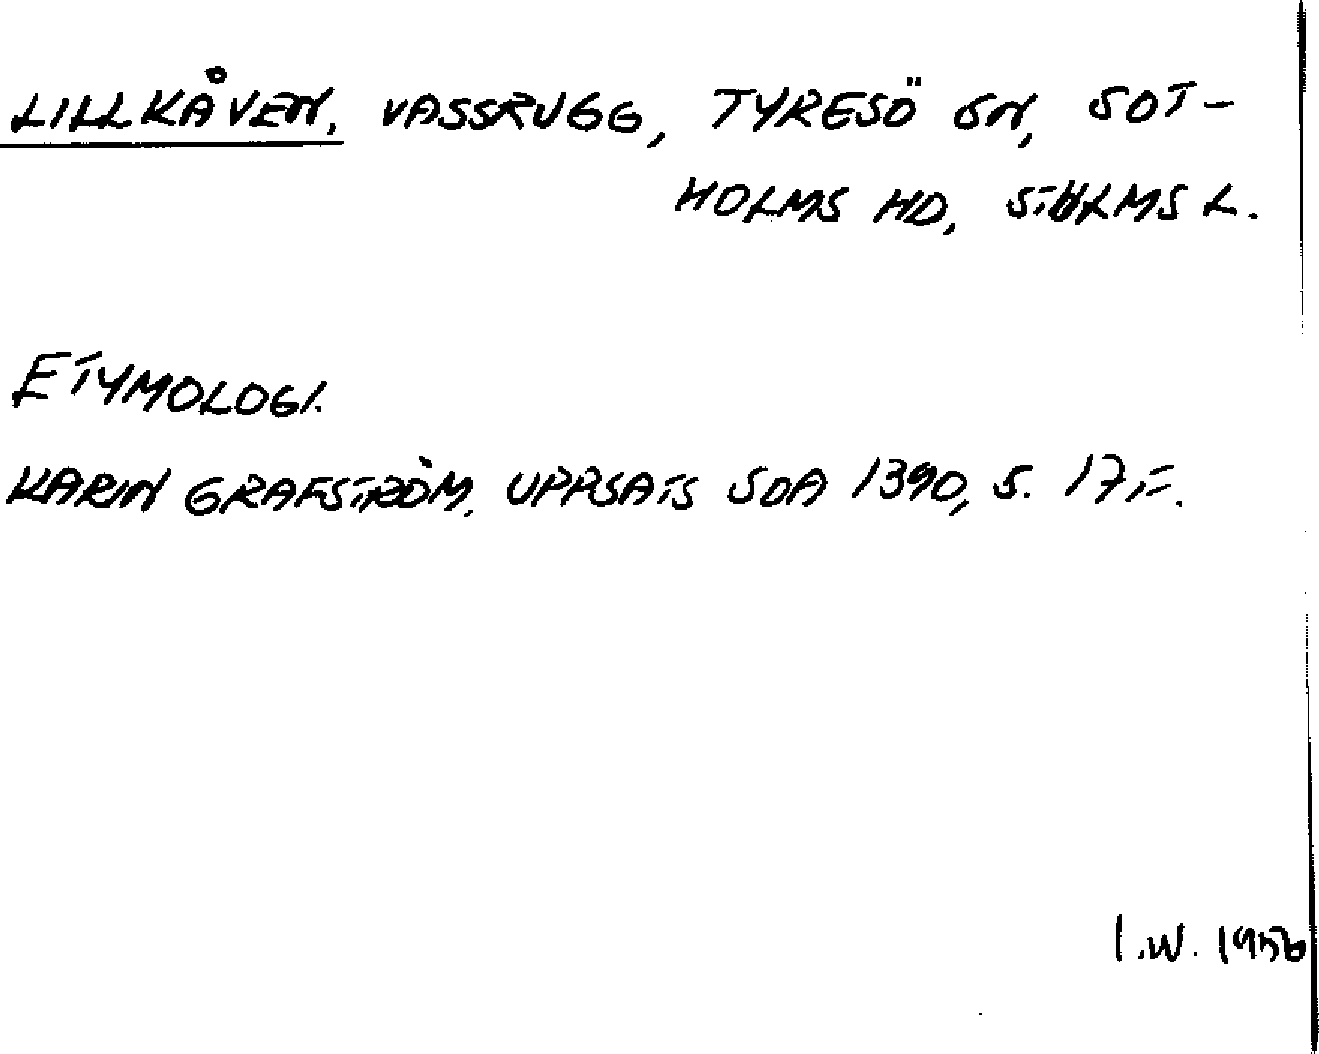 LILLKÅVEN, VASSRUGG, TYRESÖ SN, SOT-
HOLMS HD, STHLMS L.
ETYMOLOGI.
KARIN GRAFSTRÖM, UPPSATS SOA 1390, S. 17 F.
I.W. 1956